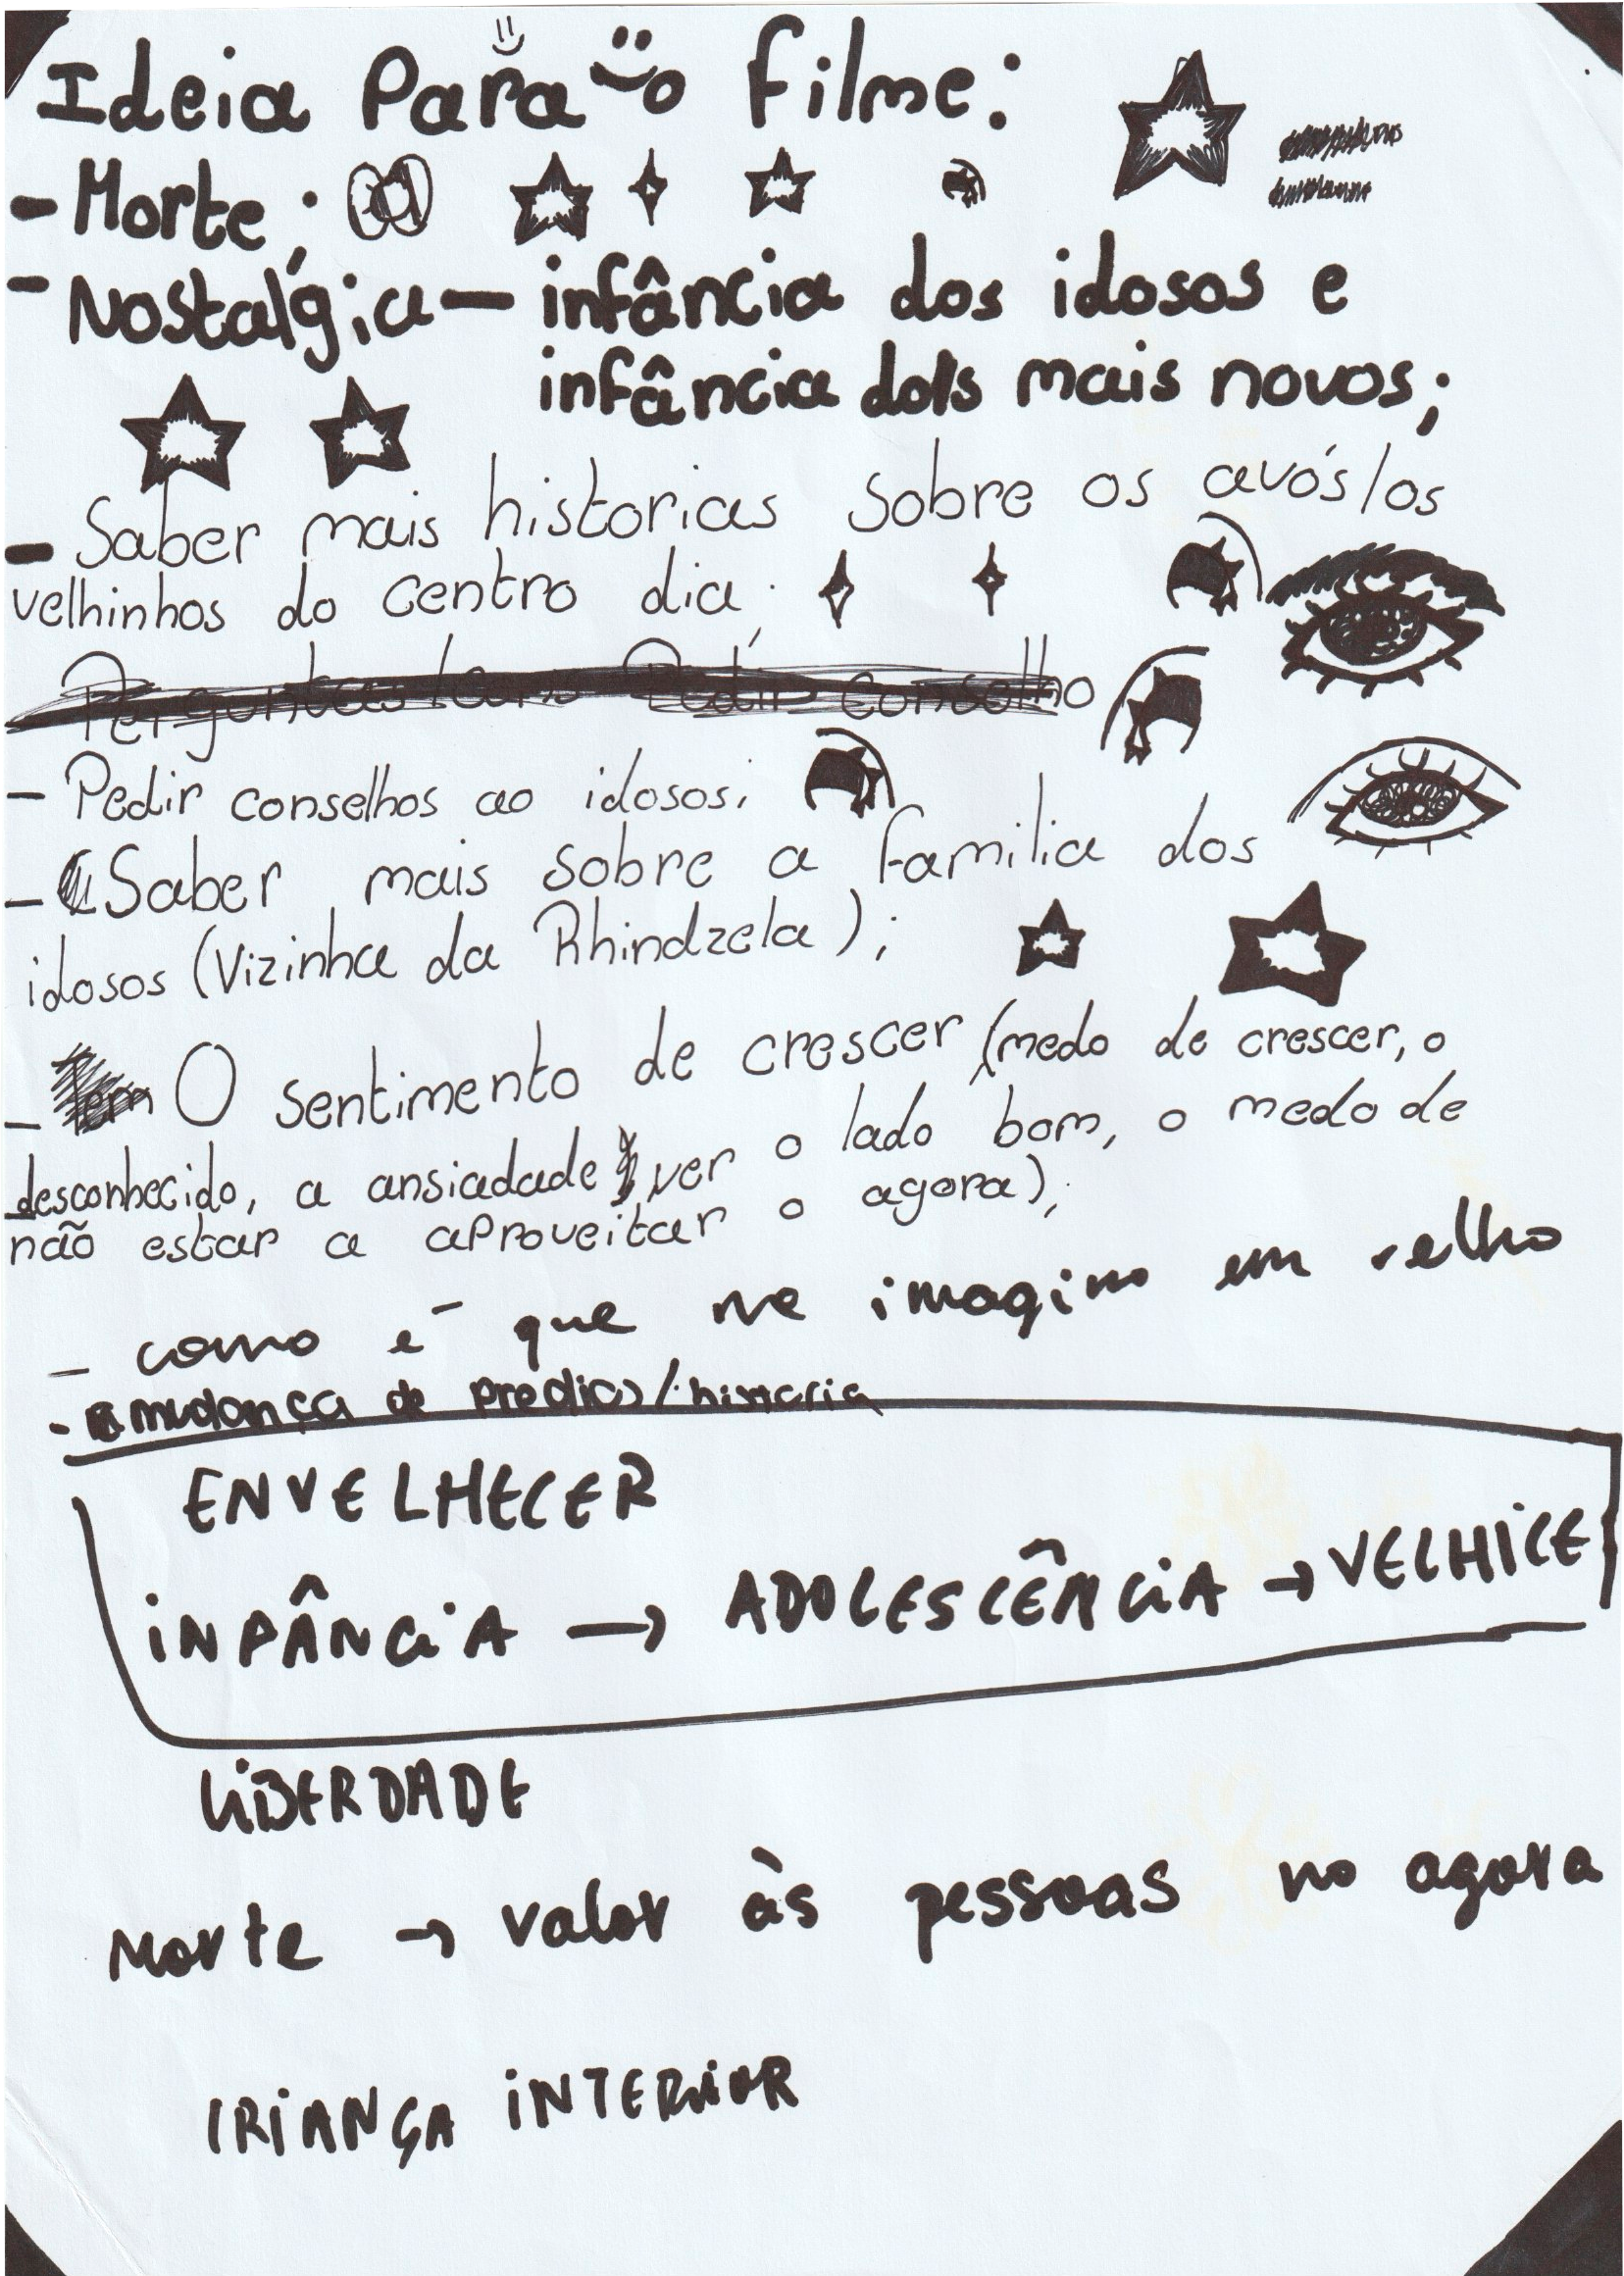 Ideia Para o filme:
- Morte;
- Nostalgia — infância dos idosos e
infância dos mais novos;
- Saber mais historias sobre os avós/os
velhinhos do centro dia;
Perguntas Pedir conselho
- Pedir conselhos ao idosos;
- Saber mais sobre a familia dos
idosos (Vizinha da Rhindzela);
- O sentimento de crescer (medo de crescer, o
desconhecido, a ansiadade, ver o lado bom, o medo de
não estar a aproveitar o agora);
- como é que me imagino em velho
- mudança de predios/historia
ENVELHECER
INFÂNCIA → ADOLESCÊNCIA → VELHICE
LIBERDADE
Morte → valor às pessoas no agora
CRIANÇA INTERIOR